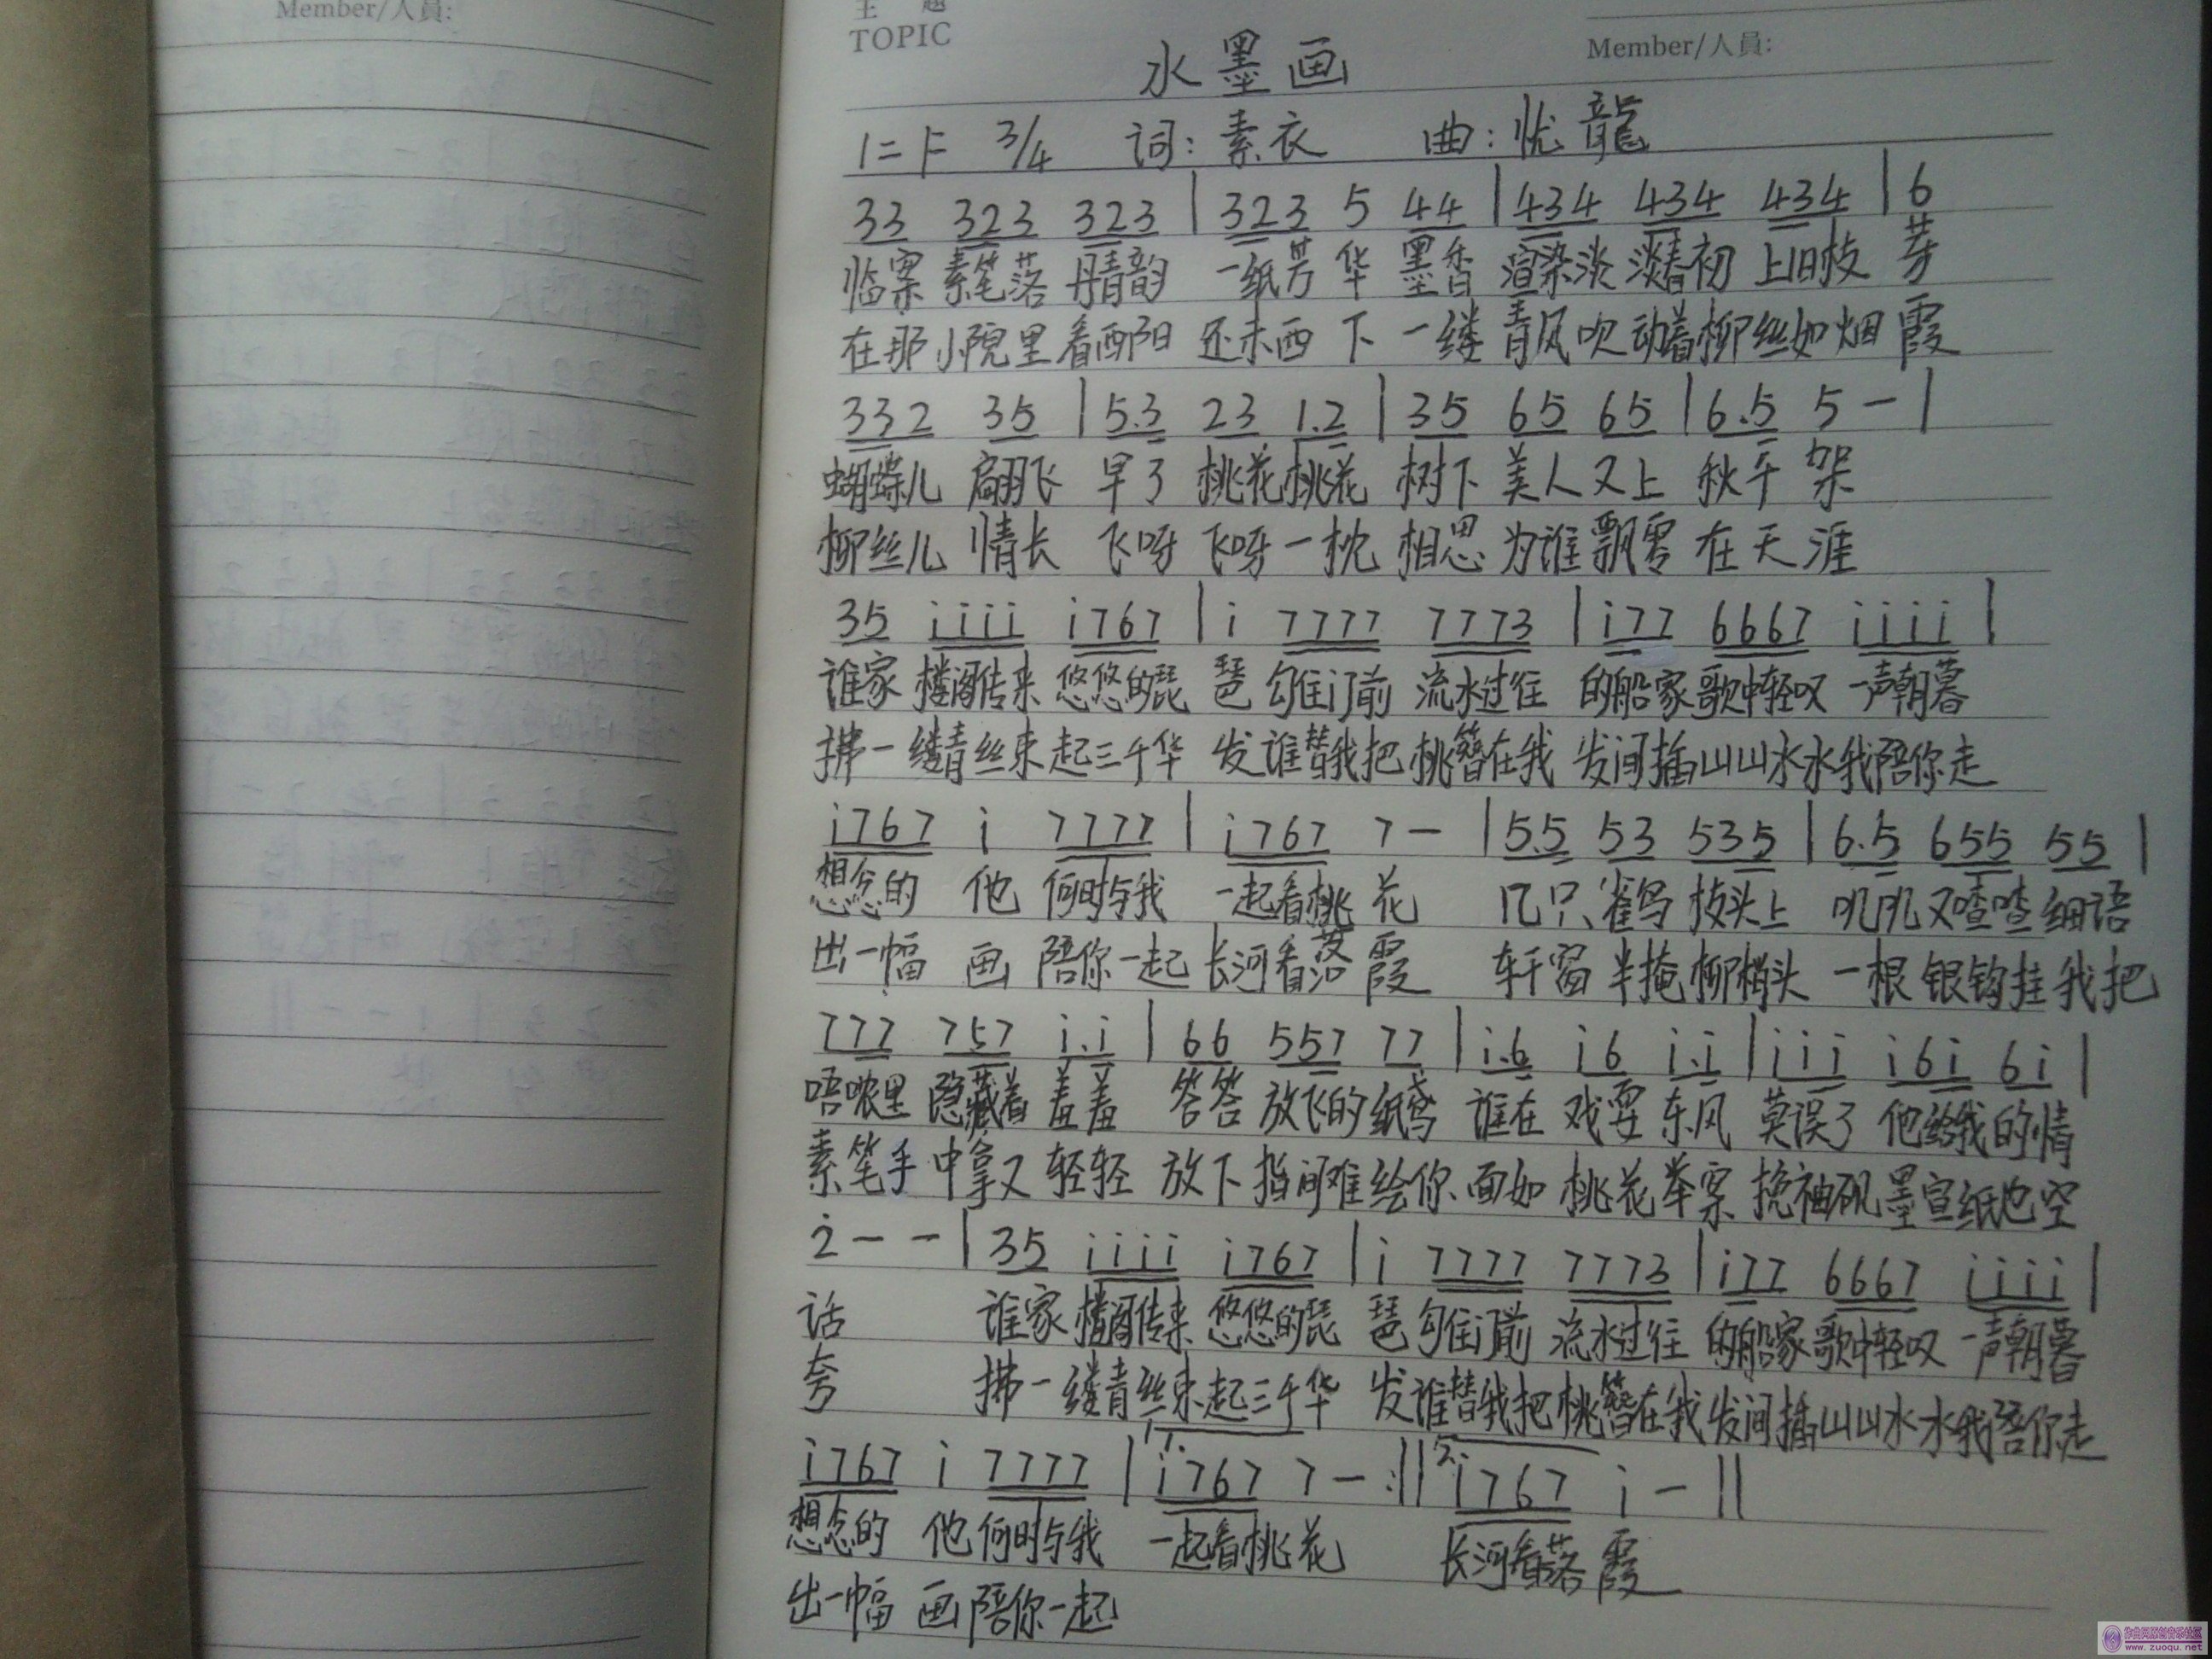 Member/人員:
主 题
TOPIC
Member/人員:
水墨画
1=F 3/4 词:素衣 曲:忧龍
33 323 323 | 323 5 44 | 434 434 434 | 6
临案 素笔落 丹青韵 一纸芳 华 墨香 渲染淡 淡春初 上旧枝 芽
在那小院里看西阳 还未西 下 一缕 青风吹动着柳丝如烟 霞
332 35 | 5.3 23 1.2 | 35 65 65 | 6.5 5 — |
蝴蝶儿 翩飞 早了 桃花桃花 树下 美人又上 秋千 架
柳丝儿 情长 飞呀 飞呀一枕 相思 为谁飘零 在天 涯
35 i i i i i767 | i 7777 7773 | i77 6667 i i i i |
谁家 楼阁传来 悠悠的琵 琶 勾住门前 流水过往 的船家歌中轻叹 一声朝暮
拂一 缕青丝束起三千华 发谁替我把 桃簪在我 发间插山山水水我陪你走
i767 i 7777 | i767 7 — | 5.5 53 535 | 6.5 655 55 |
想念的 他 何时与我 一起看桃 花 几只 雀鸟 枝头上 叽叽又喳喳 细语
出一幅 画 陪你一起 长河看落 霞 轩窗 半掩 柳梢头 一根 银钩挂 我把
777 757 i.i | 66 557 77 | i.6 i6 i.i | i i i i6i 6i |
唔哝里 隐藏着 羞羞 答答 放飞的 纸鸢 谁在 戏耍 东风 莫误了 他给我的情
素笔手 中拿又 轻轻 放下 指间难 绘你 面如 桃花 举案 挽袖砚墨宣纸也空
2̇ — — | 35 i i i i i767 | i 7777 7773 | i77 6667 i i i i |
话 谁家 楼阁传来 悠悠的琵 琶 勾住门前 流水过往 的船家歌中轻叹 一声朝暮
夸 拂一 缕青丝束起三千华 发谁替我把桃簪在我发间插山山水水我陪你走
i767 i 7777 | 1. i767 7 — :|| 2. i767 i — ||
想念的 他 何时与我 一起看桃 花 长河看落 霞
出一幅 画 陪你一起
www.zuoqu.net